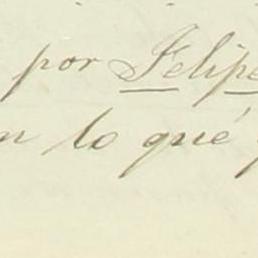 por Felipe
lo qué